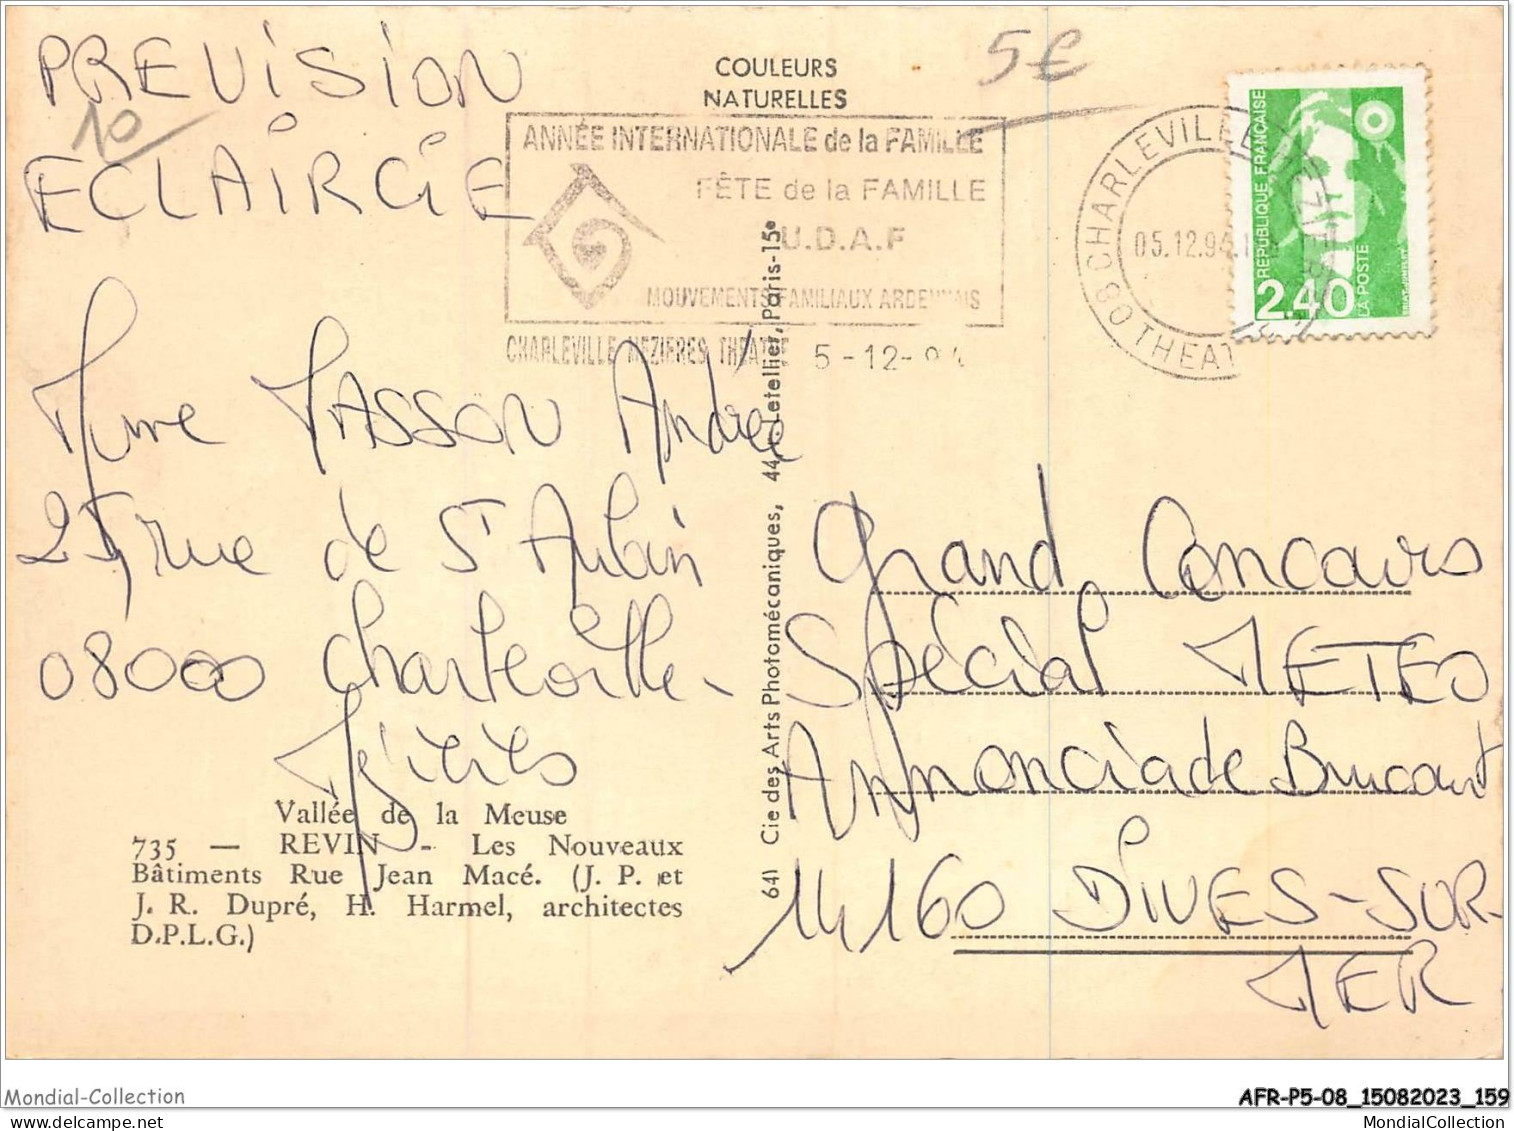 PREVISION
10
ECLAIRCIE
COULEURS
NATURELLES
5€
ANNÉE INTERNATIONALE de la FAMILLE
FÊTE de la FAMILLE
U.D.A.F
MOUVEMENTS FAMILIAUX ARDENNAIS
CHARLEVILLE MEZIERES THEATRE 5-12-94
08 CHARLEVILLE MEZIERES THEATRE
05.12.94
RÉPUBLIQUE FRANÇAISE
2.40
LA POSTE
Mme MASSON Andrée
25 rue de St Aubin
08000 Charleville-
Mézières
Vallée de la Meuse
735 — REVIN - Les Nouveaux
Bâtiments Rue Jean Macé. (J. P. et
J. R. Dupré, H. Harmel, architectes
D.P.L.G.)
641 Cie des Arts Photomécaniques, 44, Letellier, Paris-15e
Grand Concours
Spécial METEO
Annonciade Brucourt
14160 DIVES-SUR-
MER
Mondial-Collection
AFR-P5-08_15082023_159
www.delcampe.net
MondialCollection